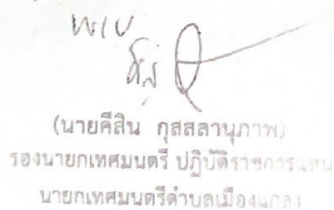 (นายคีสิน กุสสลานุภาพ)
รองนายกเทศมนตรี ปฏิบัติราชการแทน
นายกเทศมนตรีตำบลเมืองแกลง